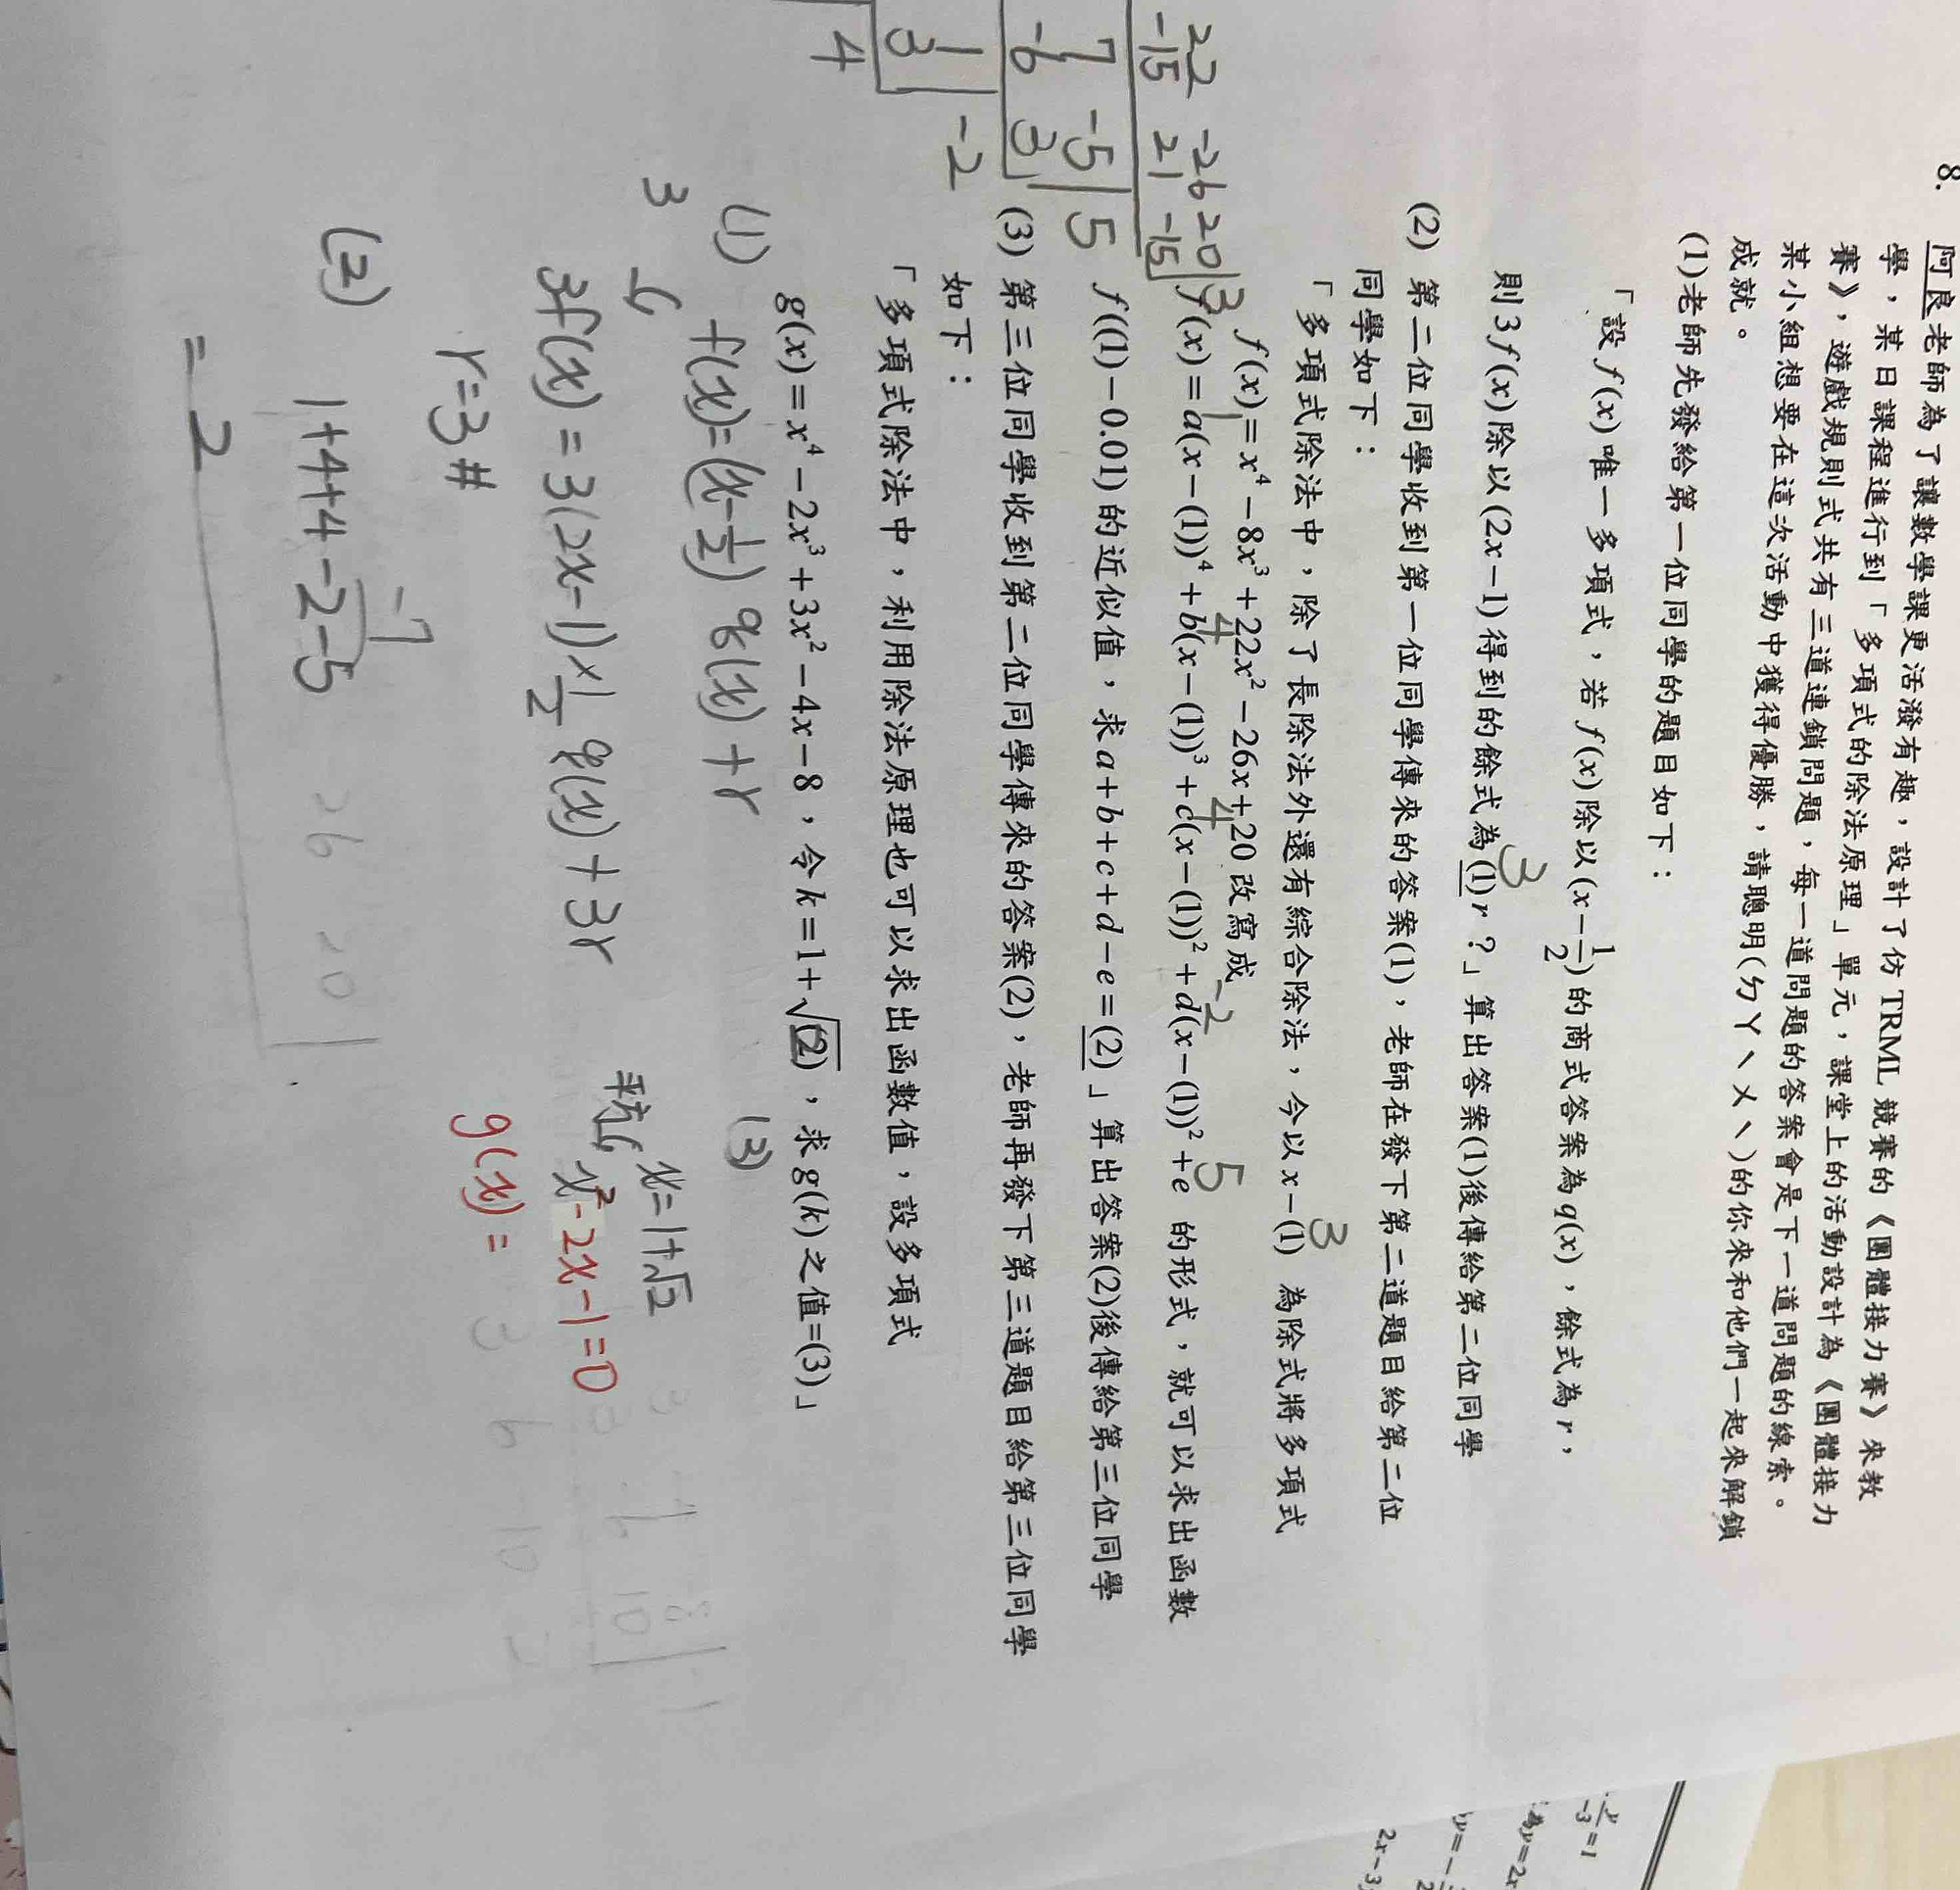 8. 阿良老師為了讓數學課更活潑有趣，設計了仿 TRML 競賽的《團體接力賽》來教
學，某日課程進行到「多項式的除法原理」單元，課堂上的活動設計為《團體接力
賽》，遊戲規則式共有三道連鎖問題，每一道問題的答案會是下一道問題的線索。
某小組想要在這次活動中獲得優勝，請聰明(ㄅㄚˋㄨˋ)的你來和他們一起來解鎖
成就。
(1)老師先發給第一位同學的題目如下：
「設 f(x) 唯一多項式，若 f(x) 除以 (x−1/2) 的商式答案為 q(x)，餘式為 r，
則 3f(x) 除以 (2x−1) 得到的餘式為 (1)r？」算出答案(1)後傳給第二位同學
3
(2) 第二位同學收到第一位同學傳來的答案(1)，老師在發下第二道題目給第二位
同學如下：
「多項式除法中，除了長除法外還有綜合除法，今以 x−(1) 為除式將多項式
3
f(x) = x⁴−8x³+22x²−26x+20 改寫成
f(x)=a(x−(1))⁴+b(x−(1))³+c(x−(1))²+d(x−(1))²+e 的形式，就可以求出函數
1 4 4 -2 5
f((1)−0.01) 的近似值，求 a+b+c+d−e=(2)」算出答案(2)後傳給第三位同學
(3) 第三位同學收到第二位同學傳來的答案(2)，老師再發下第三道題目給第三位同學
如下：
「多項式除法中，利用除法原理也可以求出函數值，設多項式
g(x)=x⁴−2x³+3x²−4x−8，令 k=1+√(2)，求 g(k) 之值=(3)」
22 -26 20 | 3
-15 21 -15
7 -5 | 5
-6 3
1 | -2
3
4
(1) f(x)=(x-1/2) q(x)+r
3f(x)=3(2x-1)×1/2 q(x)+3r
r=3#
(2) 1+4+4-2-5
-7
=2
(3) x=1+√2
x²-2x-1=0
g(x)=
-3=1
y=2x
y=-
2x-3